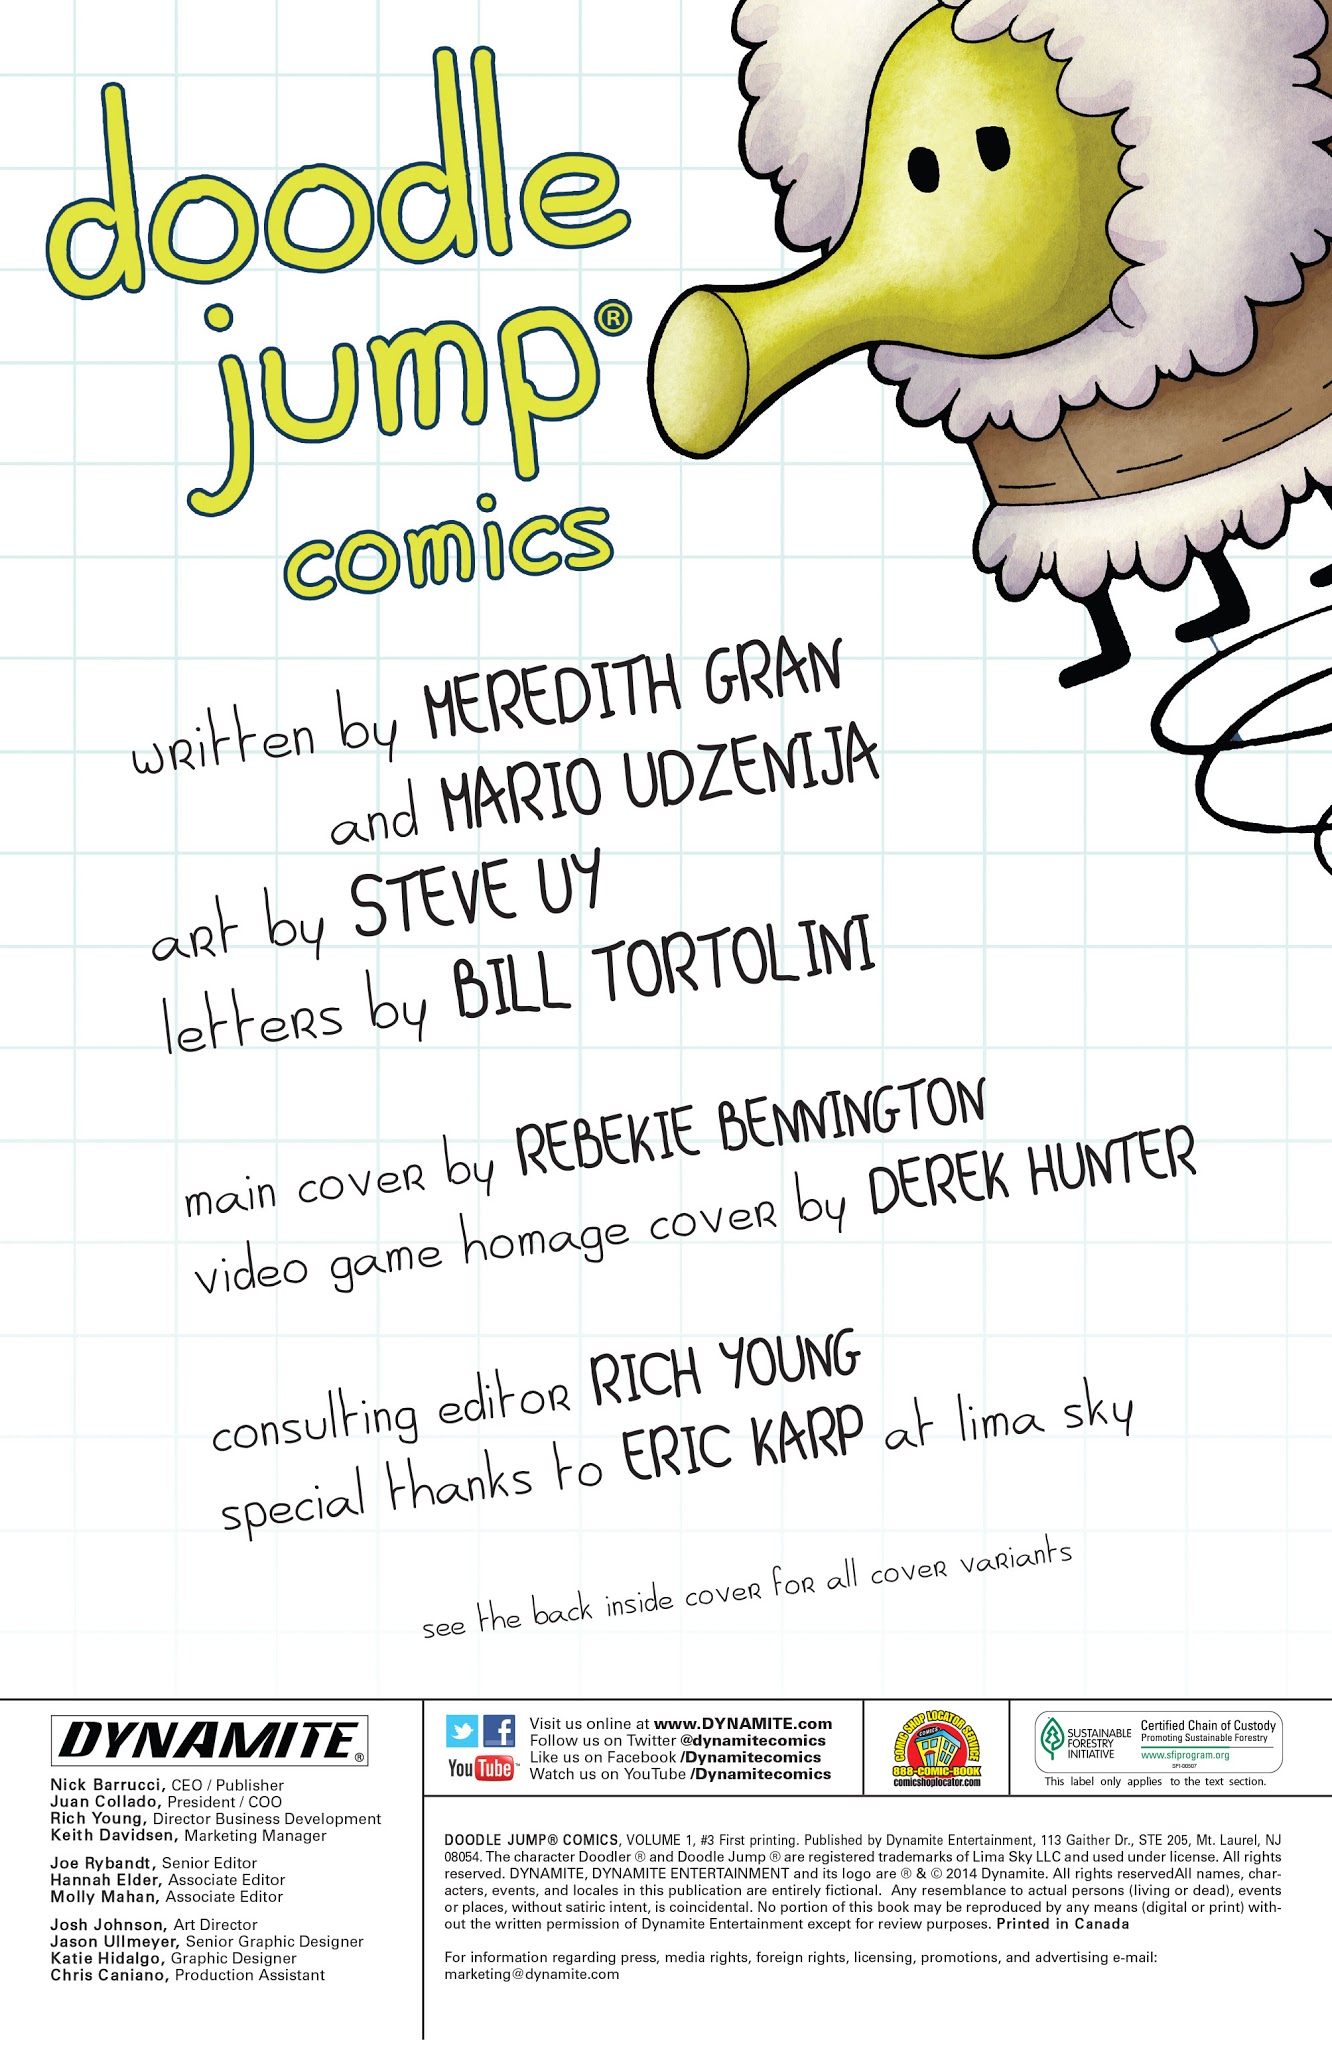 doodle
jump®
comics
written by MEREDITH GRAN
and MARIO UDZENIJA
art by STEVE UY
letters by BILL TORTOLINI
main cover by REBEKIE BENNINGTON
video game homage cover by DEREK HUNTER
consulting editor RICH YOUNG
special thanks to ERIC KARP at lima sky
see the back inside cover for all cover variants
DYNAMITE®
Nick Barrucci, CEO / Publisher
Juan Collado, President / COO
Rich Young, Director Business Development
Keith Davidsen, Marketing Manager
Joe Rybandt, Senior Editor
Hannah Elder, Associate Editor
Molly Mahan, Associate Editor
Josh Johnson, Art Director
Jason Ullmeyer, Senior Graphic Designer
Katie Hidalgo, Graphic Designer
Chris Caniano, Production Assistant
YouTube™
Visit us online at www.DYNAMITE.com
Follow us on Twitter @dynamitecomics
Like us on Facebook /Dynamitecomics
Watch us on YouTube /Dynamitecomics
COMIC SHOP LOCATOR SERVICE
COMICS
888-COMIC-BOOK
comicshoplocator.com
SUSTAINABLE
FORESTRY
INITIATIVE
Certified Chain of Custody
Promoting Sustainable Forestry
www.sfiprogram.org
SFI-00507
This label only applies to the text section.
DOODLE JUMP® COMICS, VOLUME 1, #3 First printing. Published by Dynamite Entertainment, 113 Gaither Dr., STE 205, Mt. Laurel, NJ
08054. The character Doodler ® and Doodle Jump ® are registered trademarks of Lima Sky LLC and used under license. All rights
reserved. DYNAMITE, DYNAMITE ENTERTAINMENT and its logo are ® & © 2014 Dynamite. All rights reservedAll names, char-
acters, events, and locales in this publication are entirely fictional. Any resemblance to actual persons (living or dead), events
or places, without satiric intent, is coincidental. No portion of this book may be reproduced by any means (digital or print) with-
out the written permission of Dynamite Entertainment except for review purposes. Printed in Canada
For information regarding press, media rights, foreign rights, licensing, promotions, and advertising e-mail:
marketing@dynamite.com